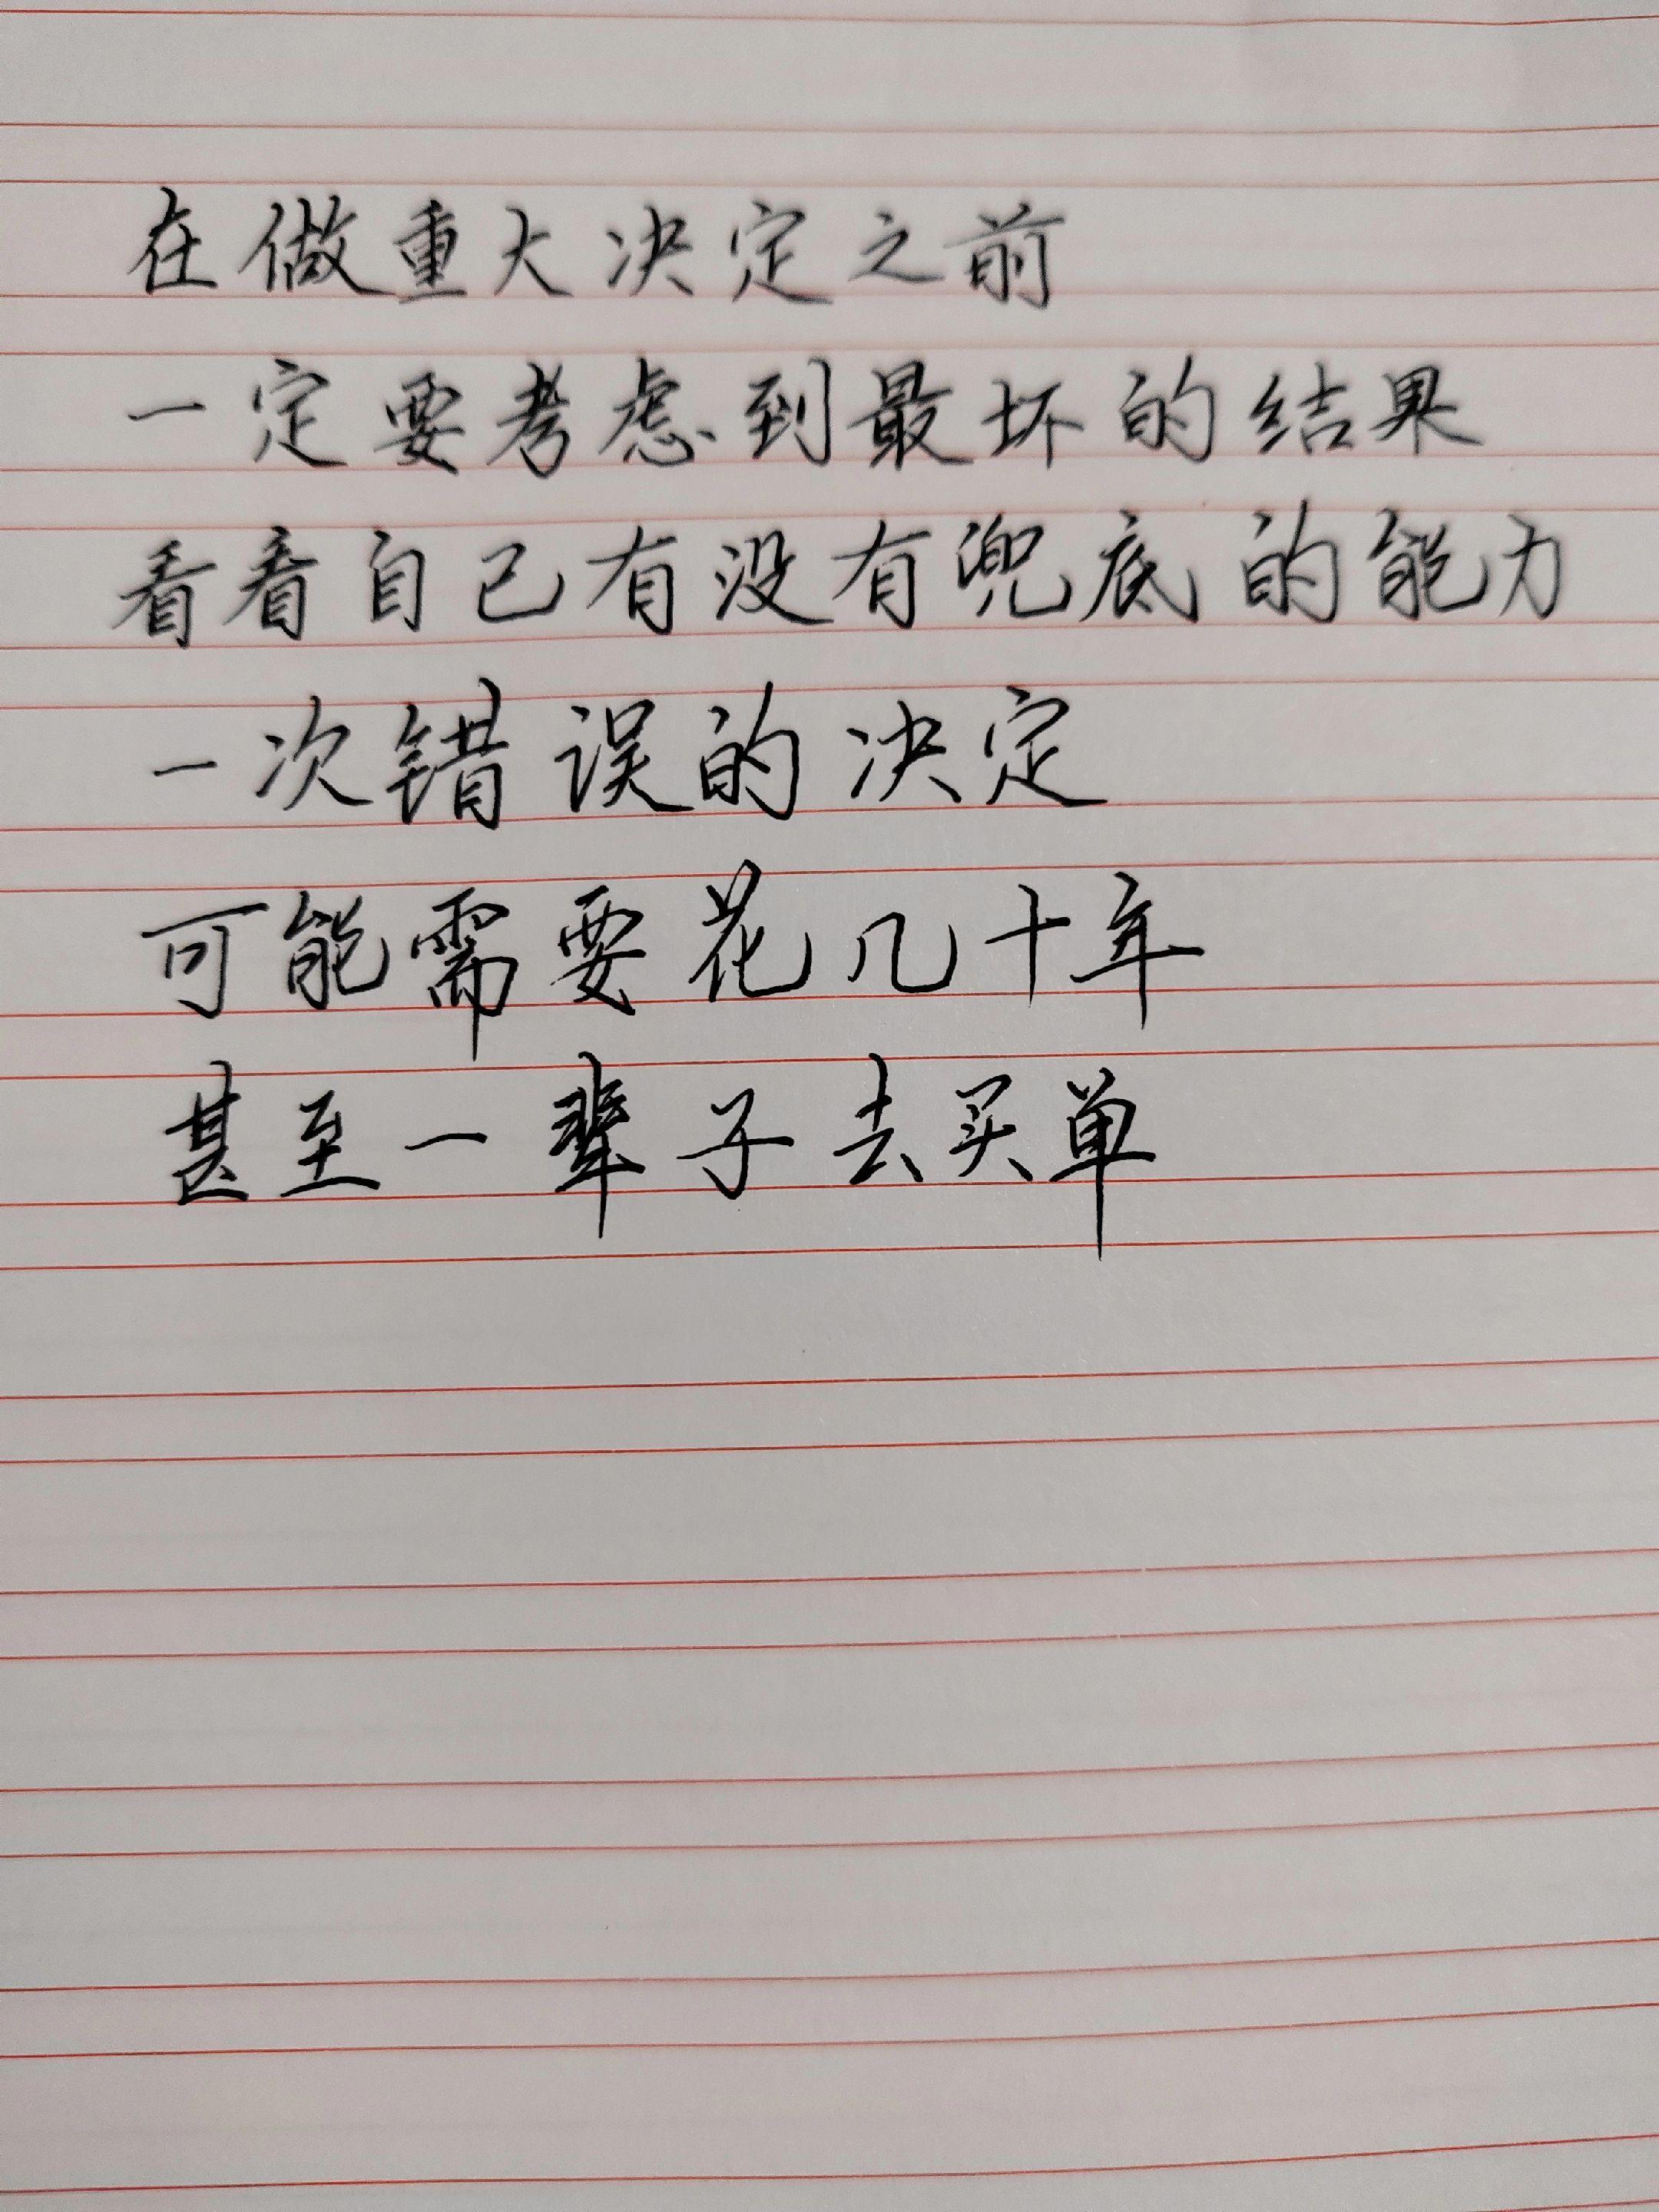 在做重大决定之前
一定要考虑到最坏的结果
看看自己有没有兜底的能力
一次错误的决定
可能需要花几十年
甚至一辈子去买单